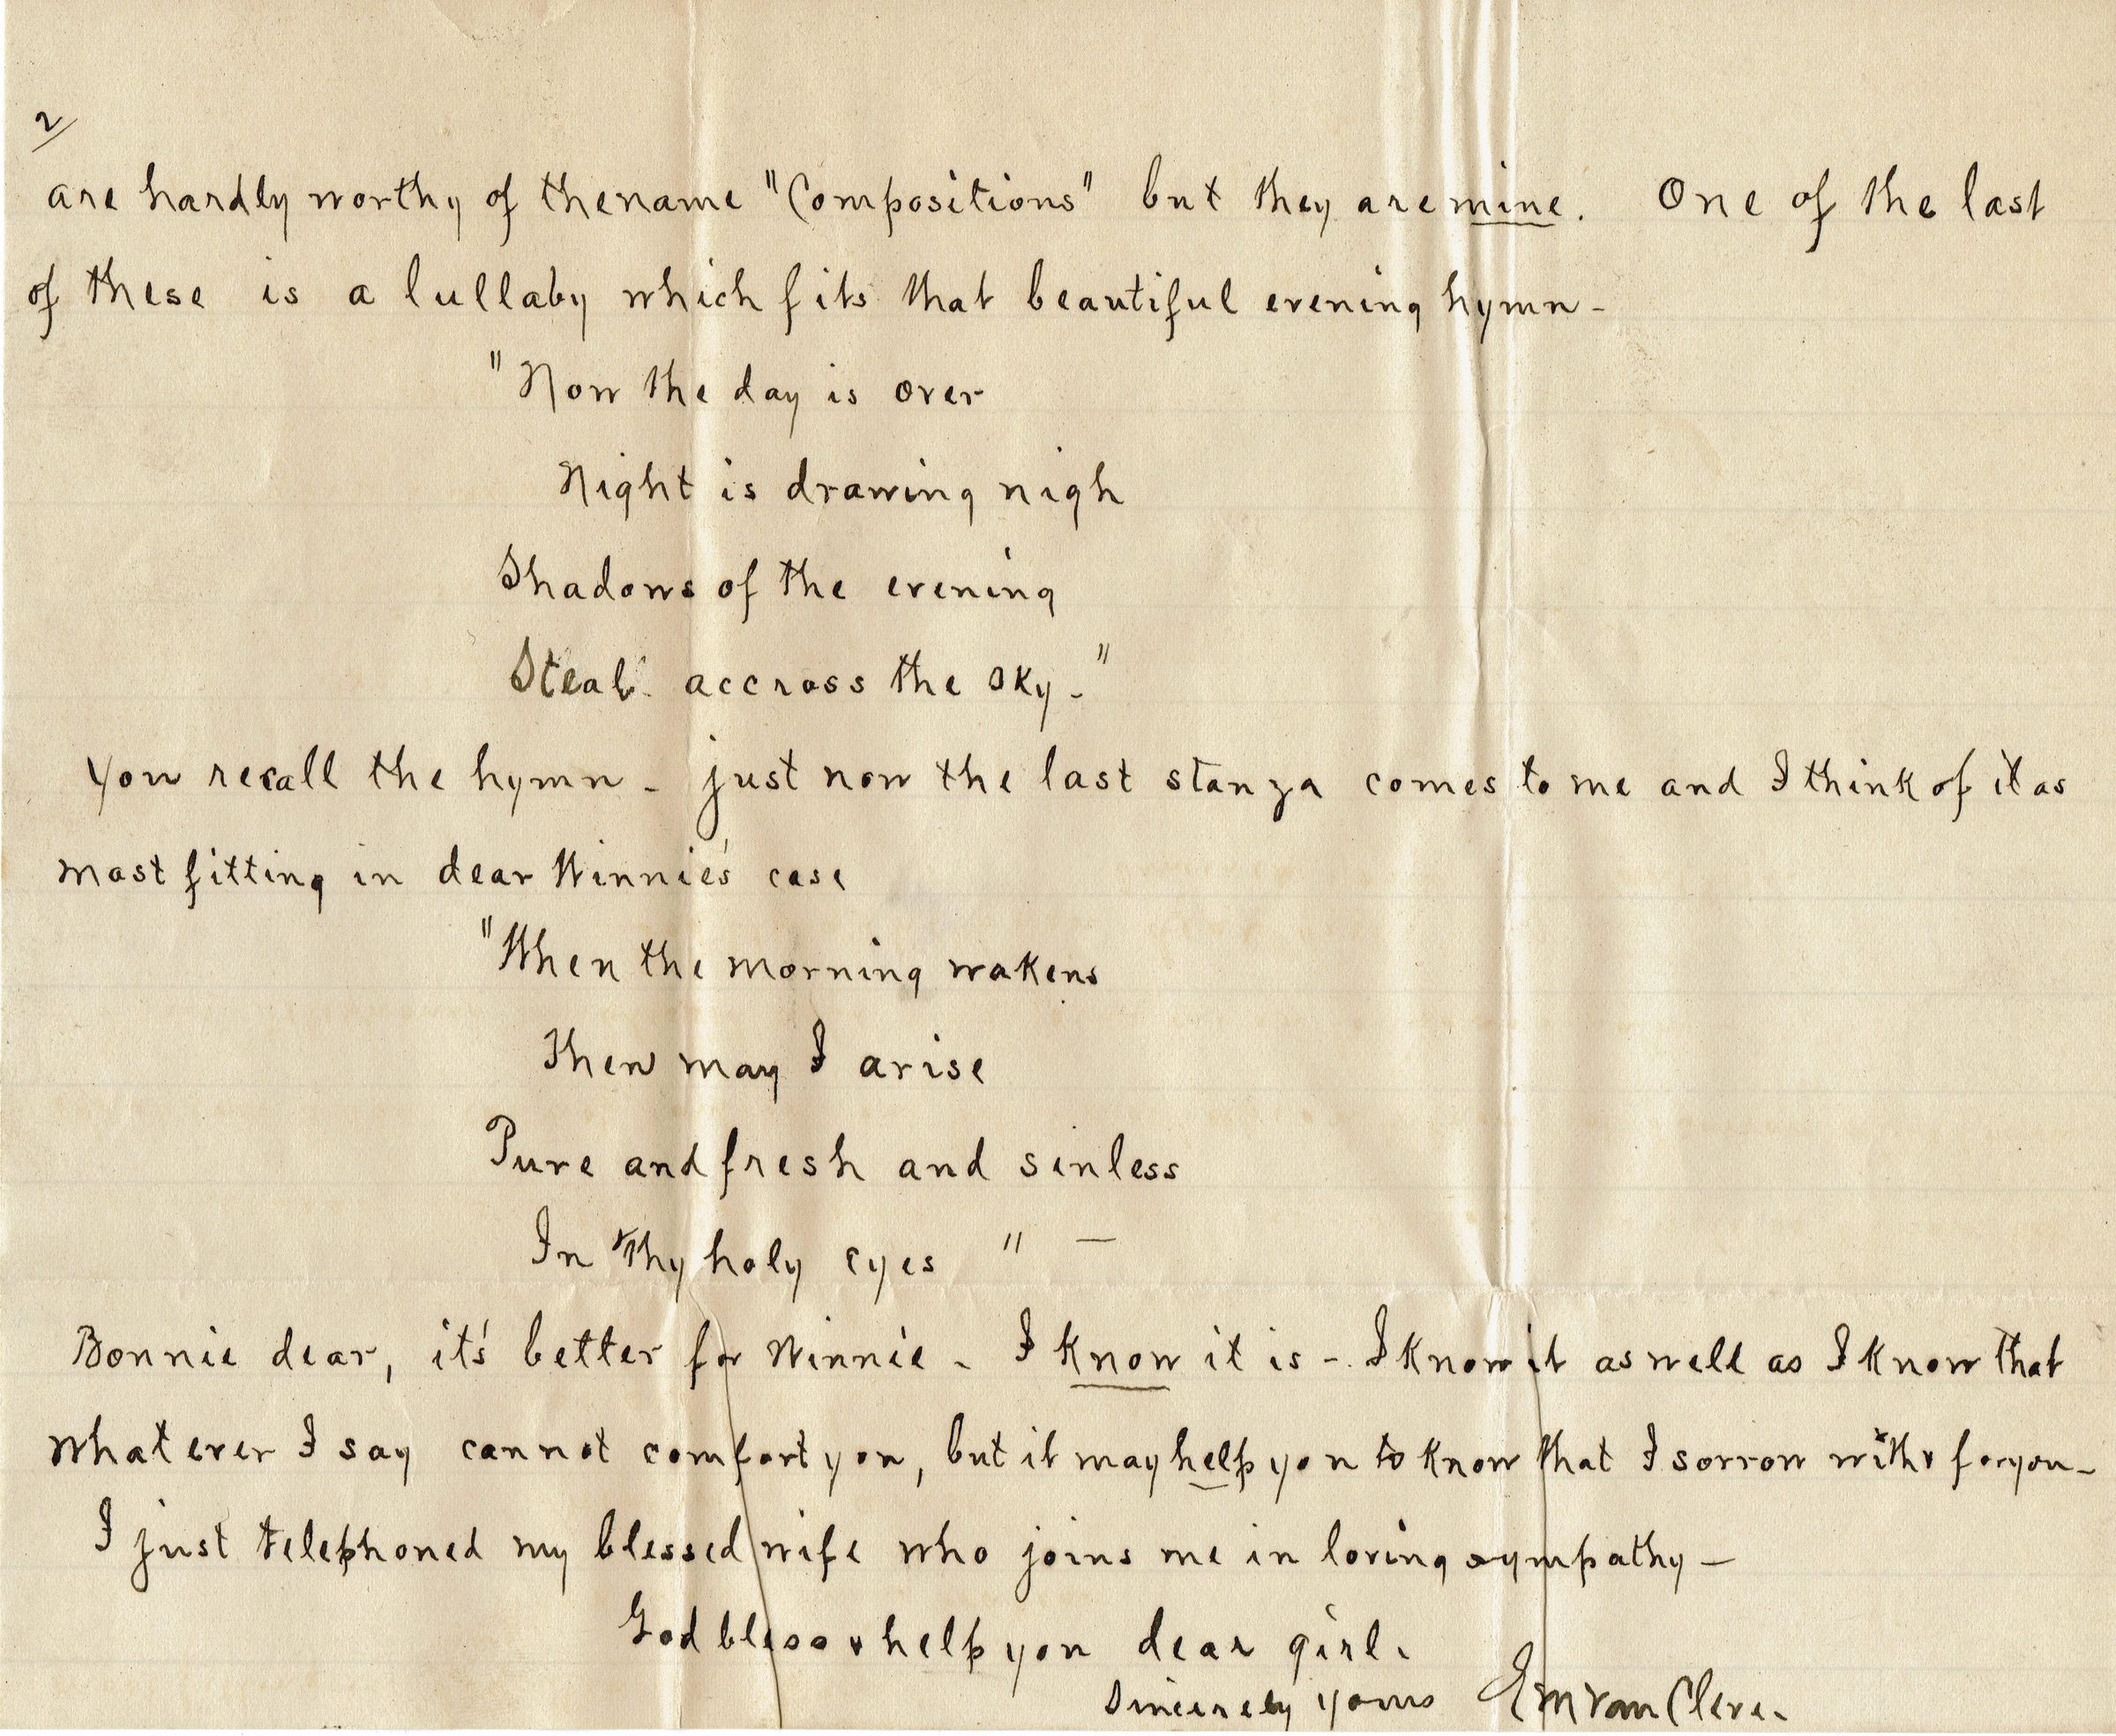 2/
are hardly worthy of the name "Compositions" but they are mine. One of the last
of these is a lullaby which fits that beautiful evening hymn -
"Now the day is over
Night is drawing nigh
Shadows of the evening
Steal accross the sky -"
You recall the hymn - just now the last stanza comes to me and I think of it as
most fitting in dear Winnie's case
"When the morning wakens
Then may I arise
Pure and fresh and sinless
In Thy holy eyes" —
Bonnie dear, it's better for Winnie - I know it is - I know it as well as I know that
whatever I say cannot comfort you, but it may help you to know that I sorrow with & for you -
I just telephoned my blessed wife who joins me in loving sympathy -
God bless & help you dear girl.
Sincerely yours EM Van Cleve.